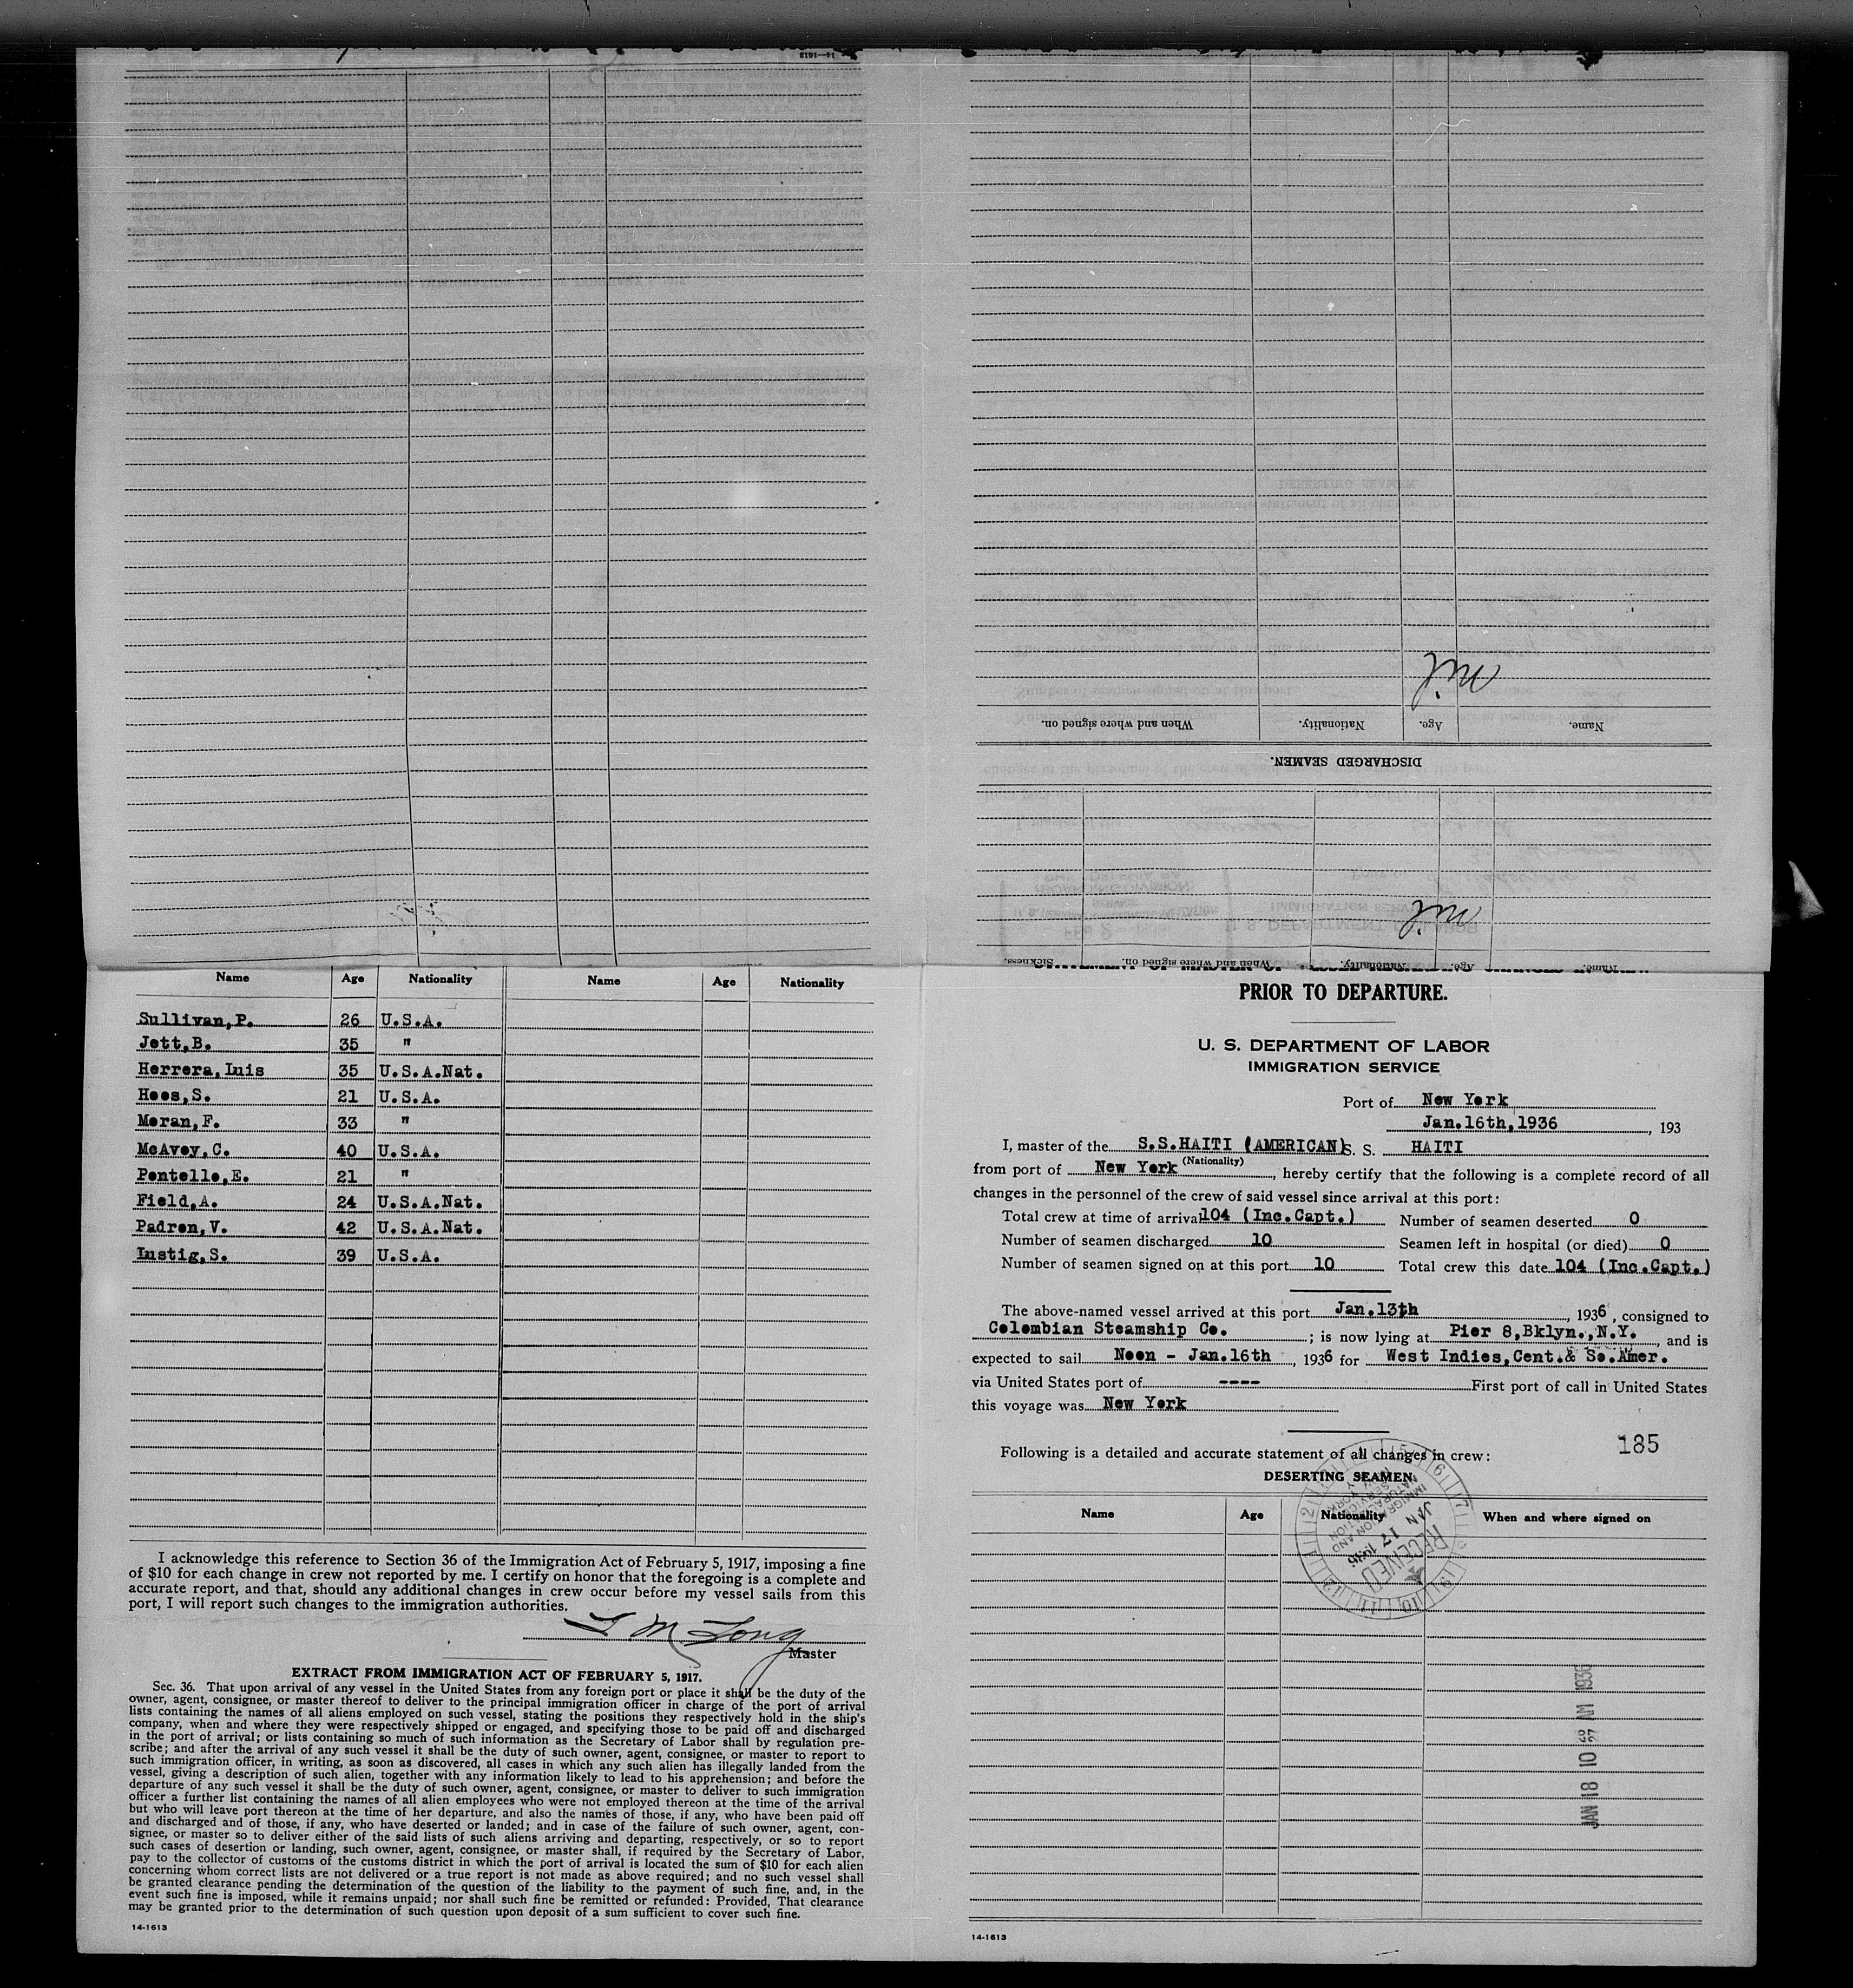 14—1613
DISCHARGED SEAMEN.
Name. Age. Nationality. When and where signed on.
nil
Name. Age. Nationality. When and where signed on. Sickness.
nil
Name Age Nationality Name Age Nationality
Sullivan,P. 26 U.S.A.
Jett,B. 35 "
Herrera,Luis 35 U.S.A.Nat.
Hoos,S. 21 U.S.A.
Moran,F. 33 "
McAvoy,C. 40 U.S.A.
Pontello,E. 21 "
Field,A. 24 U.S.A.Nat.
Padron,V. 42 U.S.A.Nat.
Lustig,S. 39 U.S.A.
I acknowledge this reference to Section 36 of the Immigration Act of February 5, 1917, imposing a fine
of $10 for each change in crew not reported by me. I certify on honor that the foregoing is a complete and
accurate report, and that, should any additional changes in crew occur before my vessel sails from this
port, I will report such changes to the immigration authorities.
Long
Master
EXTRACT FROM IMMIGRATION ACT OF FEBRUARY 5, 1917.
Sec. 36. That upon arrival of any vessel in the United States from any foreign port or place it shall be the duty of the
owner, agent, consignee, or master thereof to deliver to the principal immigration officer in charge of the port of arrival
lists containing the names of all aliens employed on such vessel, stating the positions they respectively hold in the ship's
company, when and where they were respectively shipped or engaged, and specifying those to be paid off and discharged
in the port of arrival; or lists containing so much of such information as the Secretary of Labor shall by regulation pre-
scribe; and after the arrival of any such vessel it shall be the duty of such owner, agent, consignee, or master to report to
such immigration officer, in writing, as soon as discovered, all cases in which any such alien has illegally landed from the
vessel, giving a description of such alien, together with any information likely to lead to his apprehension; and before the
departure of any such vessel it shall be the duty of such owner, agent, consignee, or master to deliver to such immigration
officer a further list containing the names of all alien employees who were not employed thereon at the time of the arrival
but who will leave port thereon at the time of her departure, and also the names of those, if any, who have been paid off
and discharged and of those, if any, who have deserted or landed; and in case of the failure of such owner, agent, con-
signee, or master so to deliver either of the said lists of such aliens arriving and departing, respectively, or so to report
such cases of desertion or landing, such owner, agent, consignee, or master shall, if required by the Secretary of Labor,
pay to the collector of customs of the customs district in which the port of arrival is located the sum of $10 for each alien
concerning whom correct lists are not delivered or a true report is not made as above required; and no such vessel shall
be granted clearance pending the determination of the question of the liability to the payment of such fine, and, in the
event such fine is imposed, while it remains unpaid; nor shall such fine be remitted or refunded: Provided, That clearance
may be granted prior to the determination of such question upon deposit of a sum sufficient to cover such fine.
14-1613
PRIOR TO DEPARTURE.
U. S. DEPARTMENT OF LABOR
IMMIGRATION SERVICE
Port of New York
Jan.16th,1936, 193
I, master of the S.S.HAITI (AMERICAN) S. S. HAITI
(Nationality)
from port of New York, hereby certify that the following is a complete record of all
changes in the personnel of the crew of said vessel since arrival at this port:
Total crew at time of arrival 104 (Inc.Capt.) Number of seamen deserted 0
Number of seamen discharged 10 Seamen left in hospital (or died) 0
Number of seamen signed on at this port 10 Total crew this date 104 (Inc.Capt.)
The above-named vessel arrived at this port Jan.13th, 1936, consigned to
Colombian Steamship Co.; is now lying at Pier 8,Bklyn.,N.Y., and is
expected to sail Noon - Jan.16th, 1936 for West Indies,Cent.& So.Amer.
via United States port of ---- First port of call in United States
this voyage was New York
185
Following is a detailed and accurate statement of all changes in crew:
DESERTING SEAMEN
Name Age Nationality When and where signed on
RECEIVED
JAN 17 1936
IMMIGRATION AND
NATURALIZATION
SERVICE
NEW YORK
JAN 18 10 AM 1936
14-1613